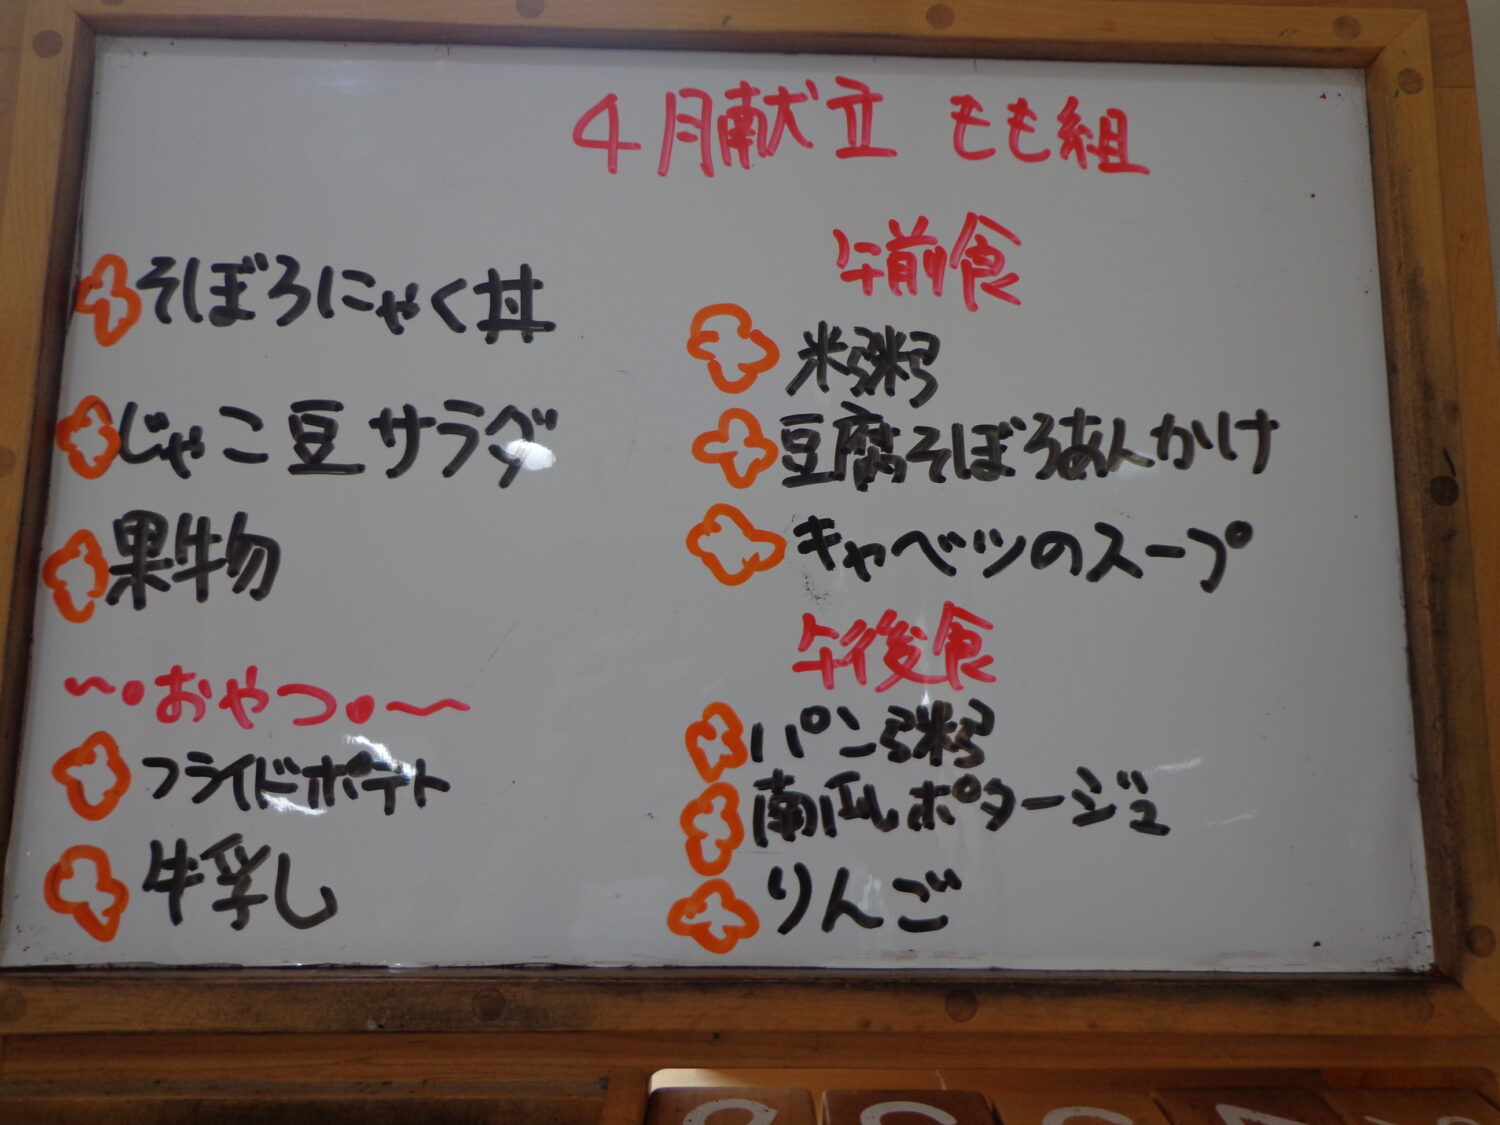 4月献立 もも組
そぼろにゃく丼
じゃこ豆サラダ
果物
～・おやつ・～
フライドポテト
牛乳し
午前食
米粥
豆腐そぼろあんかけ
キャベツのスープ
午後食
パン粥
南瓜ポタージュ
りんご